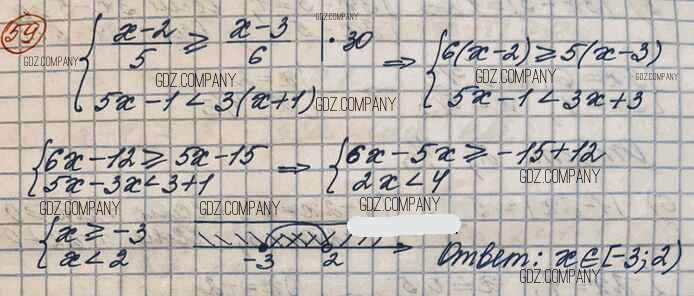 59
{ (x-2)/5 ≥ (x-3)/6 |·30
{ 5x-1 < 3(x+1)
⇒ { 6(x-2) ≥ 5(x-3)
{ 5x-1 < 3x+3
{ 6x-12 ≥ 5x-15
{ 5x-3x < 3+1
⇒ { 6x-5x ≥ -15+12
{ 2x < 4
{ x ≥ -3
{ x < 2
-3 2
Ответ: x∈[-3; 2)
GDZ.COMPANY
GDZ.COMPANY
GDZ.COMPANY
GDZ.COMPANY
GDZ.COMPANY
GDZ.COMPANY
GDZ.COMPANY
GDZ.COMPANY
GDZ.COMPANY
GDZ.COMPANY
GDZ.COMPANY